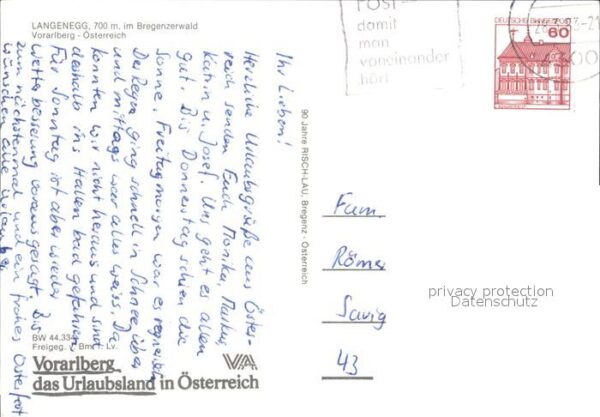 LANGENEGG, 700 m, im Bregenzerwald
Vorarlberg - Österreich
Ihr Lieben!
Herzliche Urlaubsgrüße aus Öster-
reich senden Euch Monika, Markus,
Katrin u. Josef. Uns geht es allen
gut. Bis Donnerstag schien die
Sonne. Freitagmorgen war es regnerisch
und mittags war alles weiss. Da
Der Regen ging schnell in Schnee über
konnten wir nicht heraus und sind
deshalb ins Hallenbad gefahren.
Für Sonntag ist aber wieder
Wetterbesserung vorausgesagt. Bis
zum nächstenmal und ein frohes Osterfest
wünschen alle Urlauber
BW 44.334
Freigeg. Bmf. Lv.
Vorarlberg
das Urlaubsland in Österreich
VA
90 Jahre RISCH-LAU, Bregenz - Österreich
Post
damit
man
voneinander
hört
DEUTSCHE BUNDESPOST
60
4300
Fam
Römer
Savig
43
privacy protection
Datenschutz